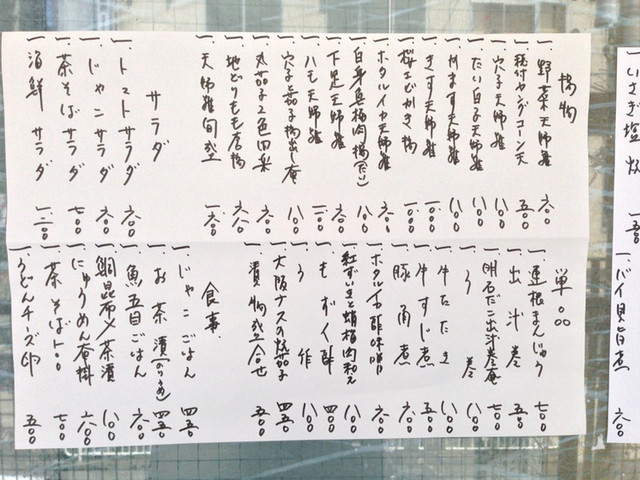 いさき塩焼
一.バイ貝旨煮 六〇〇
揚物
一.野菜天婦羅 六〇〇
一.穂付ヤングコーン天 五〇〇
一.穴子天婦羅 八〇〇
一.たい白子天婦羅 八〇〇
ます天婦羅 八〇〇
一.きす天婦羅
一.桜エビかき揚
一.ホタルイカ天婦羅 六〇〇
一.白身魚梅肉揚(たい) 八〇〇
一.下足天婦羅 六〇〇
一.ハモ天婦羅
一.穴子と茄子揚出し庵 八〇〇
一.丸茄子二色田楽 六〇〇
一.地どりもも唐揚
一.天婦羅旬盛
サラダ
一.トマトサラダ 六〇〇
一.じゃこサラダ 六〇〇
一.茶そばサラダ 七〇〇
一.海鮮サラダ
単品
一.蓮根まんじゅう 七〇〇
一.出汁巻 五〇〇
一.明石だこ出汁巻庵 七〇〇
一.う巻 八〇〇
一.牛たたき 八〇〇
一.牛すじ煮 五〇〇
一.豚角煮 六〇〇
一.ホタルイカ酢味噌 六〇〇
一.紅ずいきと蛸梅肉和え 八〇〇
一.もずく酢 四〇〇
一.う作 八〇〇
一.大阪ナスの焼茄子 四五〇
一.漬物盛合せ 五〇〇
食事
一.じゃこごはん 四五〇
一.お茶漬(のり・うめ) 四五〇
一.魚五目ごはん 六〇〇
一.鯛昆布〆茶漬 八〇〇
一.にゅうめん庵掛 六〇〇
一.茶そばトロロ 七〇〇
一.うどんチーズ卵 五〇〇